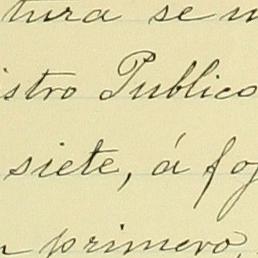 tura se
istro Publico
siete, á
primero,